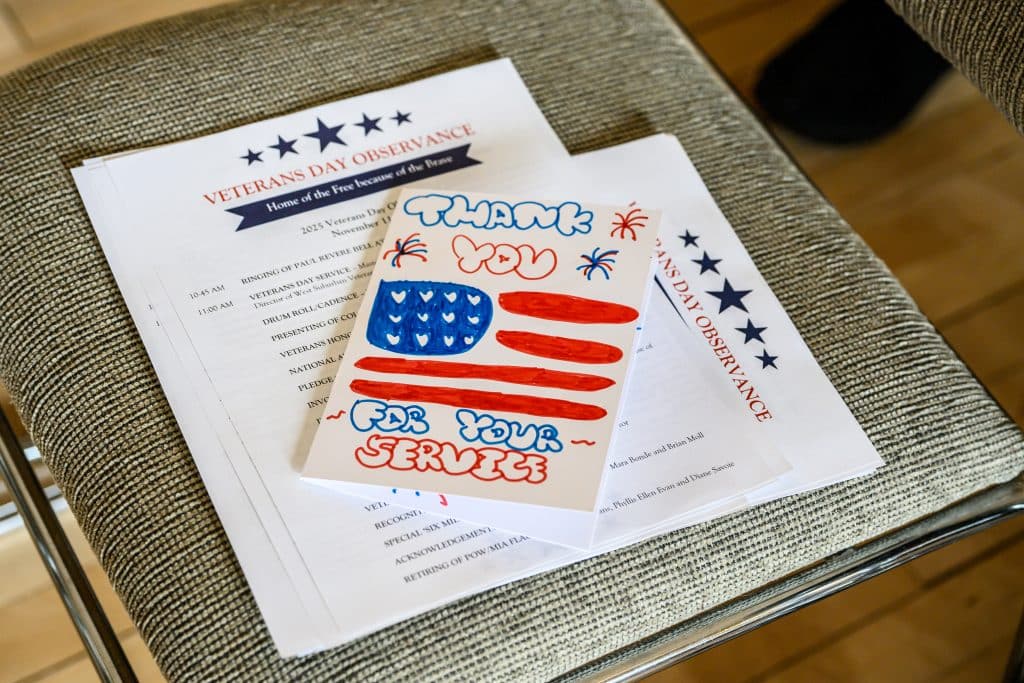 VETERANS DAY OBSERVANCE
Home of the Free because of the Brave
2025 Veterans Day
November 11
10:45 AM RINGING OF PAUL REVERE BELL
11:00 AM VETERANS DAY SERVICE –
Director of West Suburban
DRUM ROLL/CADENCE –
PRESENTING OF
VETERANS
NATIONAL
PLEDGE
RECOGNIT
SPECIAL 'SIX
ACKNOWLEDGEMENT
RETIRING OF POW/MIA FLA
THANK
YOU
FOR YOUR
SERVICE
ERANS DAY OBSERVANCE
of
or
Mara Bonde and Brian Moll
Phyllis Ellen Evan and Diane Savote